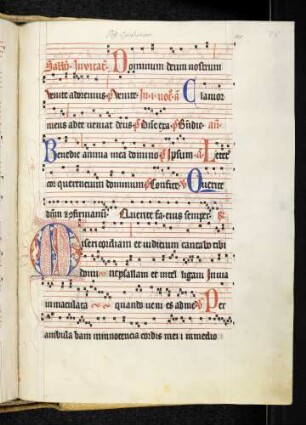 Sabbo Invitat. Dominum deum nostrum
Venite adoremus p̄s Venite In i noct̄ a Clamor
meus ad te veniat deus p̄s
Benedic anima mea domino p̄s Ipsum a Lete
cor querencium dominum p̄s Confite V Querite
dūm et confirmami Querite faciem eius semper
Misericordiam et iudicium cantabo tibi
domine psallam et intelligam in via
inmaculata quando venies ad me V Per
ambulabam in innocencia cordis mei i in medio